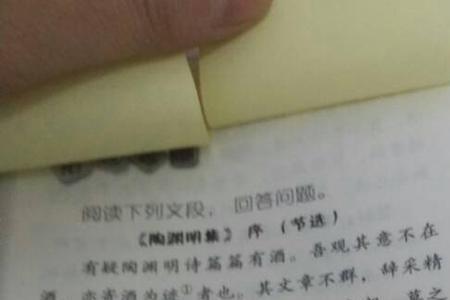 阅读下列文段，回答问题。
《陶渊明集》序（节选）
有疑陶渊明诗篇篇有酒。吾观其意不在
酒，亦寄酒为迹①者也。其文章不群，辞采精